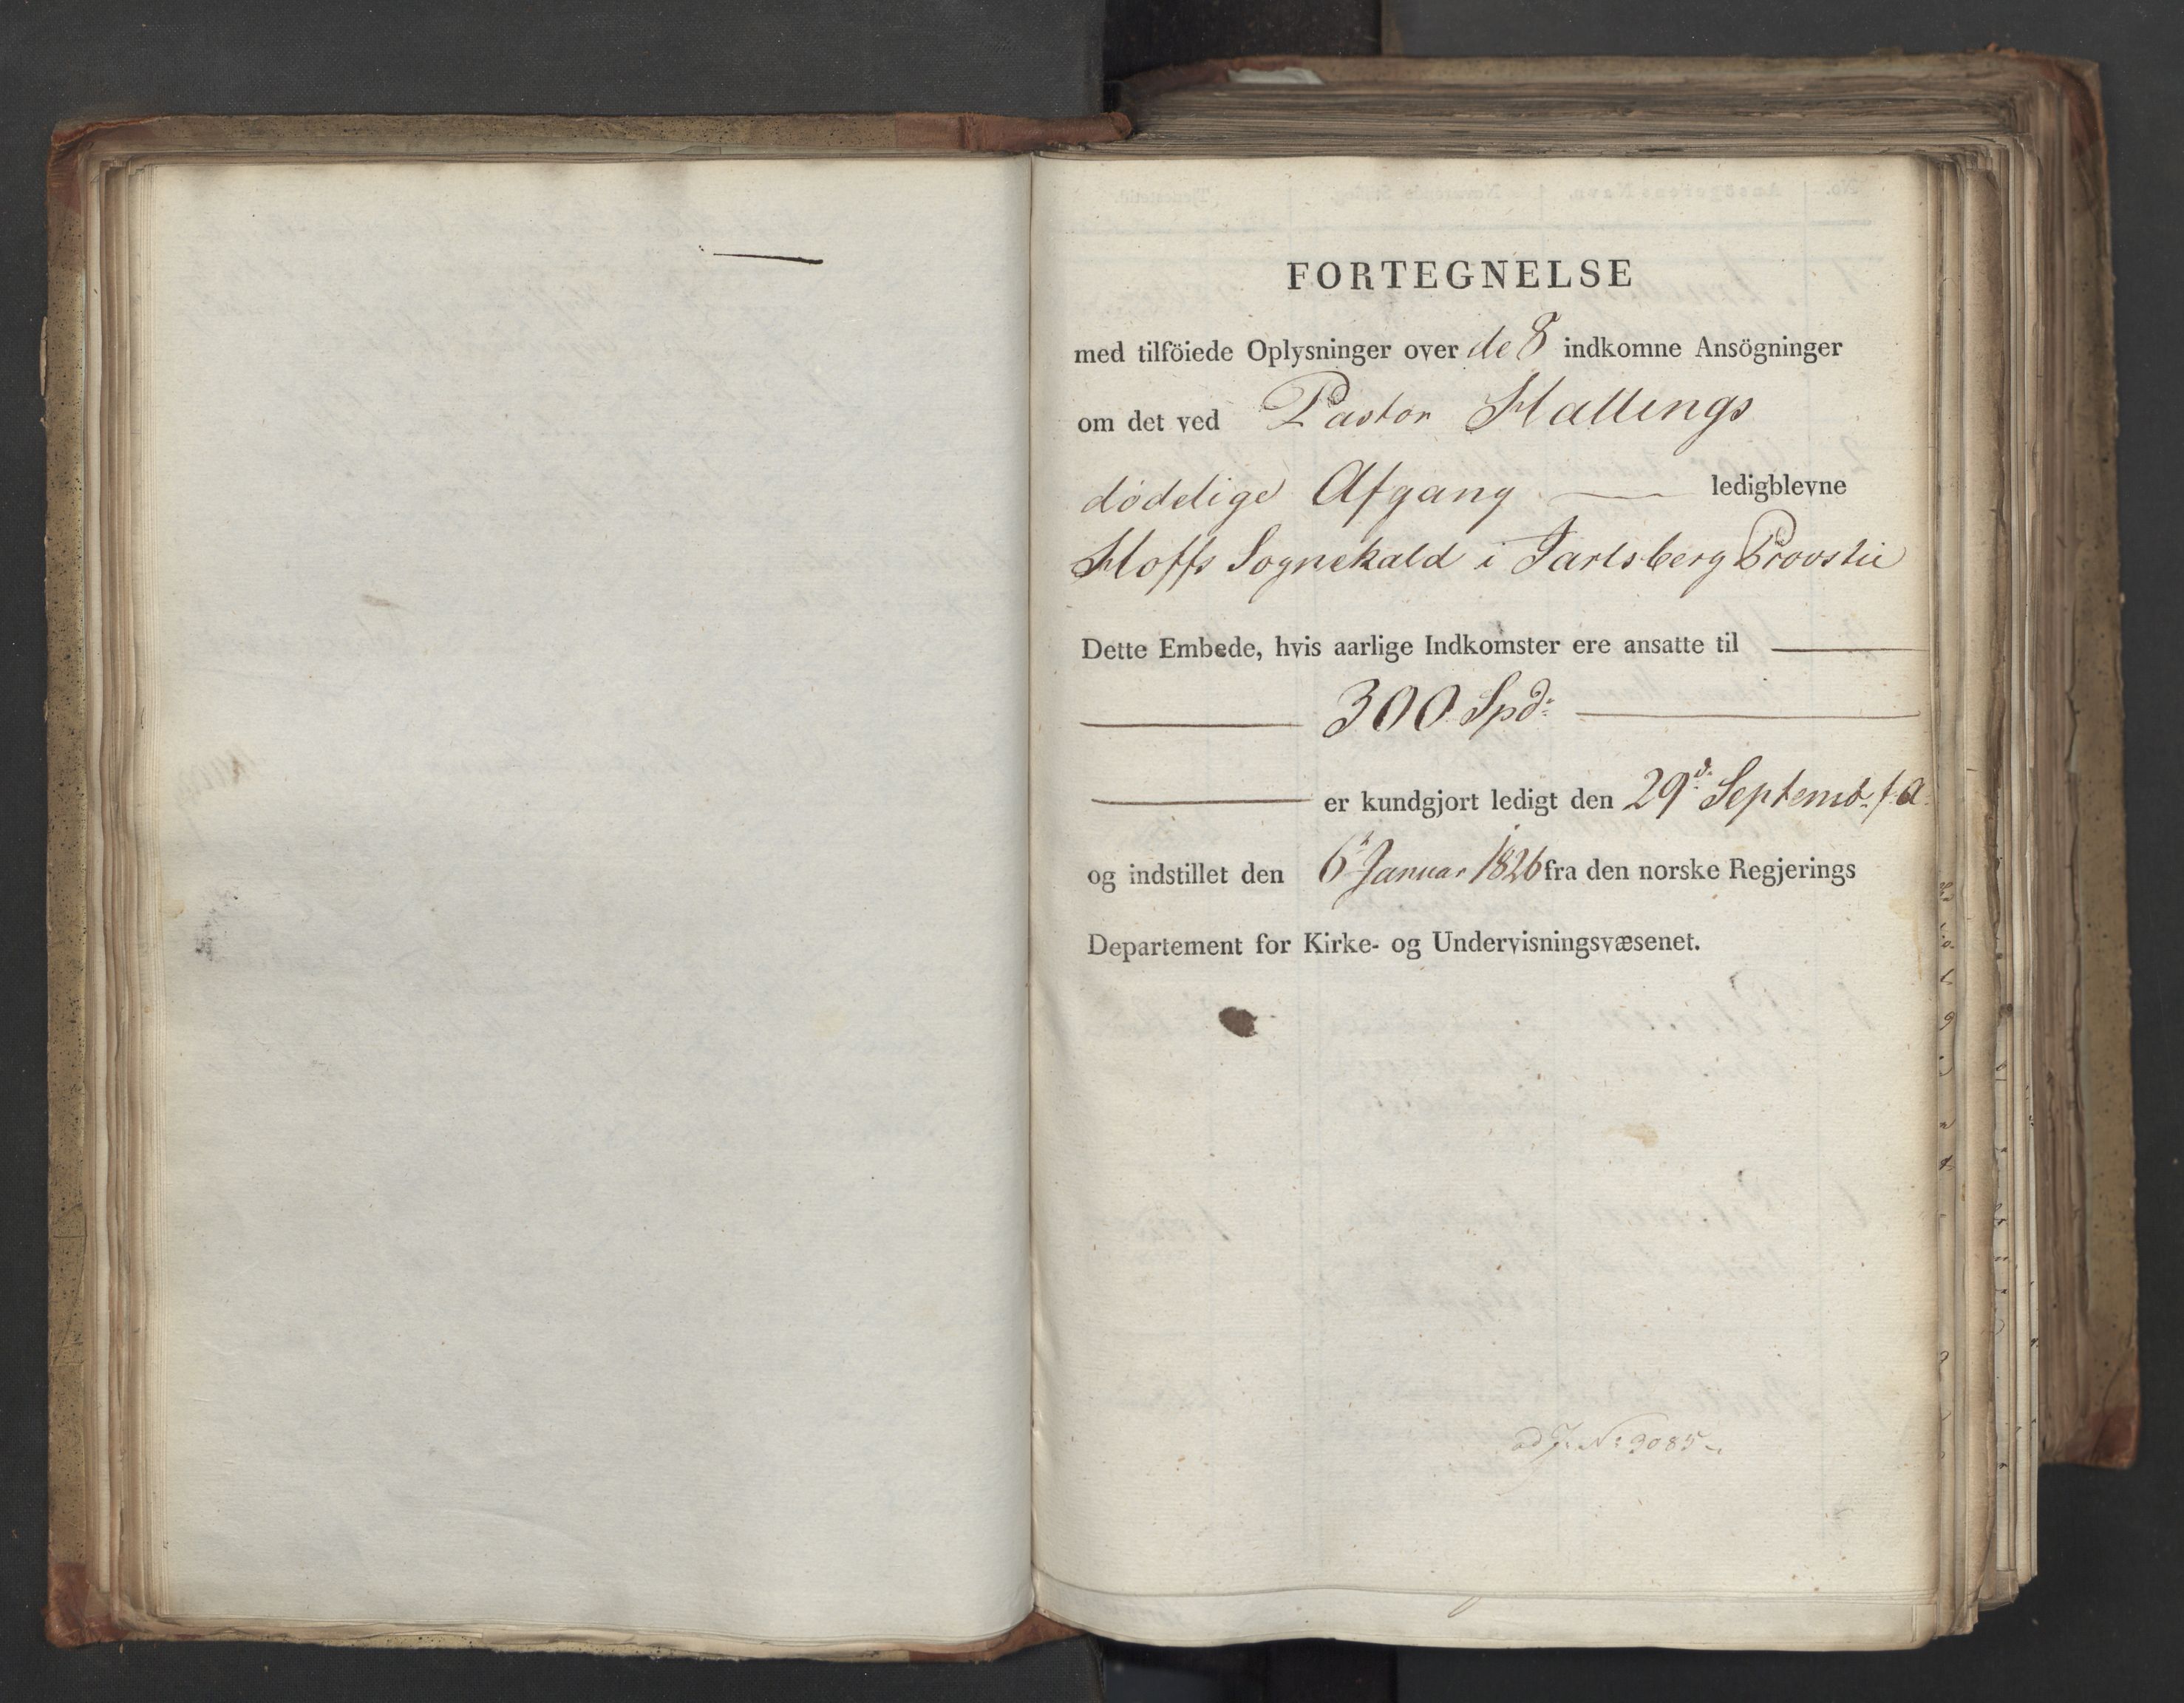 FORTEGNELSE
med tilföiede Oplysninger over de 8 indkomne Ansögninger
om det ved Pastor Hallings
dödelige Afgang ledigblevne
Hoffs Sognekald i Jarlsberg Provstie
Dette Embede, hvis aarlige Indkomster ere ansatte til
300 Spd:
er kundgjort ledigt den 29d: Septemb. f. A.
og indstillet den 6t Januar 1826 fra den norske Regjerings
Departement for Kirke- og Undervisningsvæsenet.
ad J. No 3085